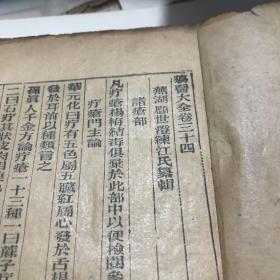 瘍醫大全卷三十四
蕪湖顧世澄練江氏纂輯
諸瘡部
凡疔瘡楊梅結毒俱彙於此部中以便檢閱參
疔瘡門主論
華元化曰疔有五色屬五臟紅屬心發於舌根
發於耳前以種類言之
孫眞人千金方論疔瘡一十三種一曰麻子疔
二曰石疔其狀皮肉相